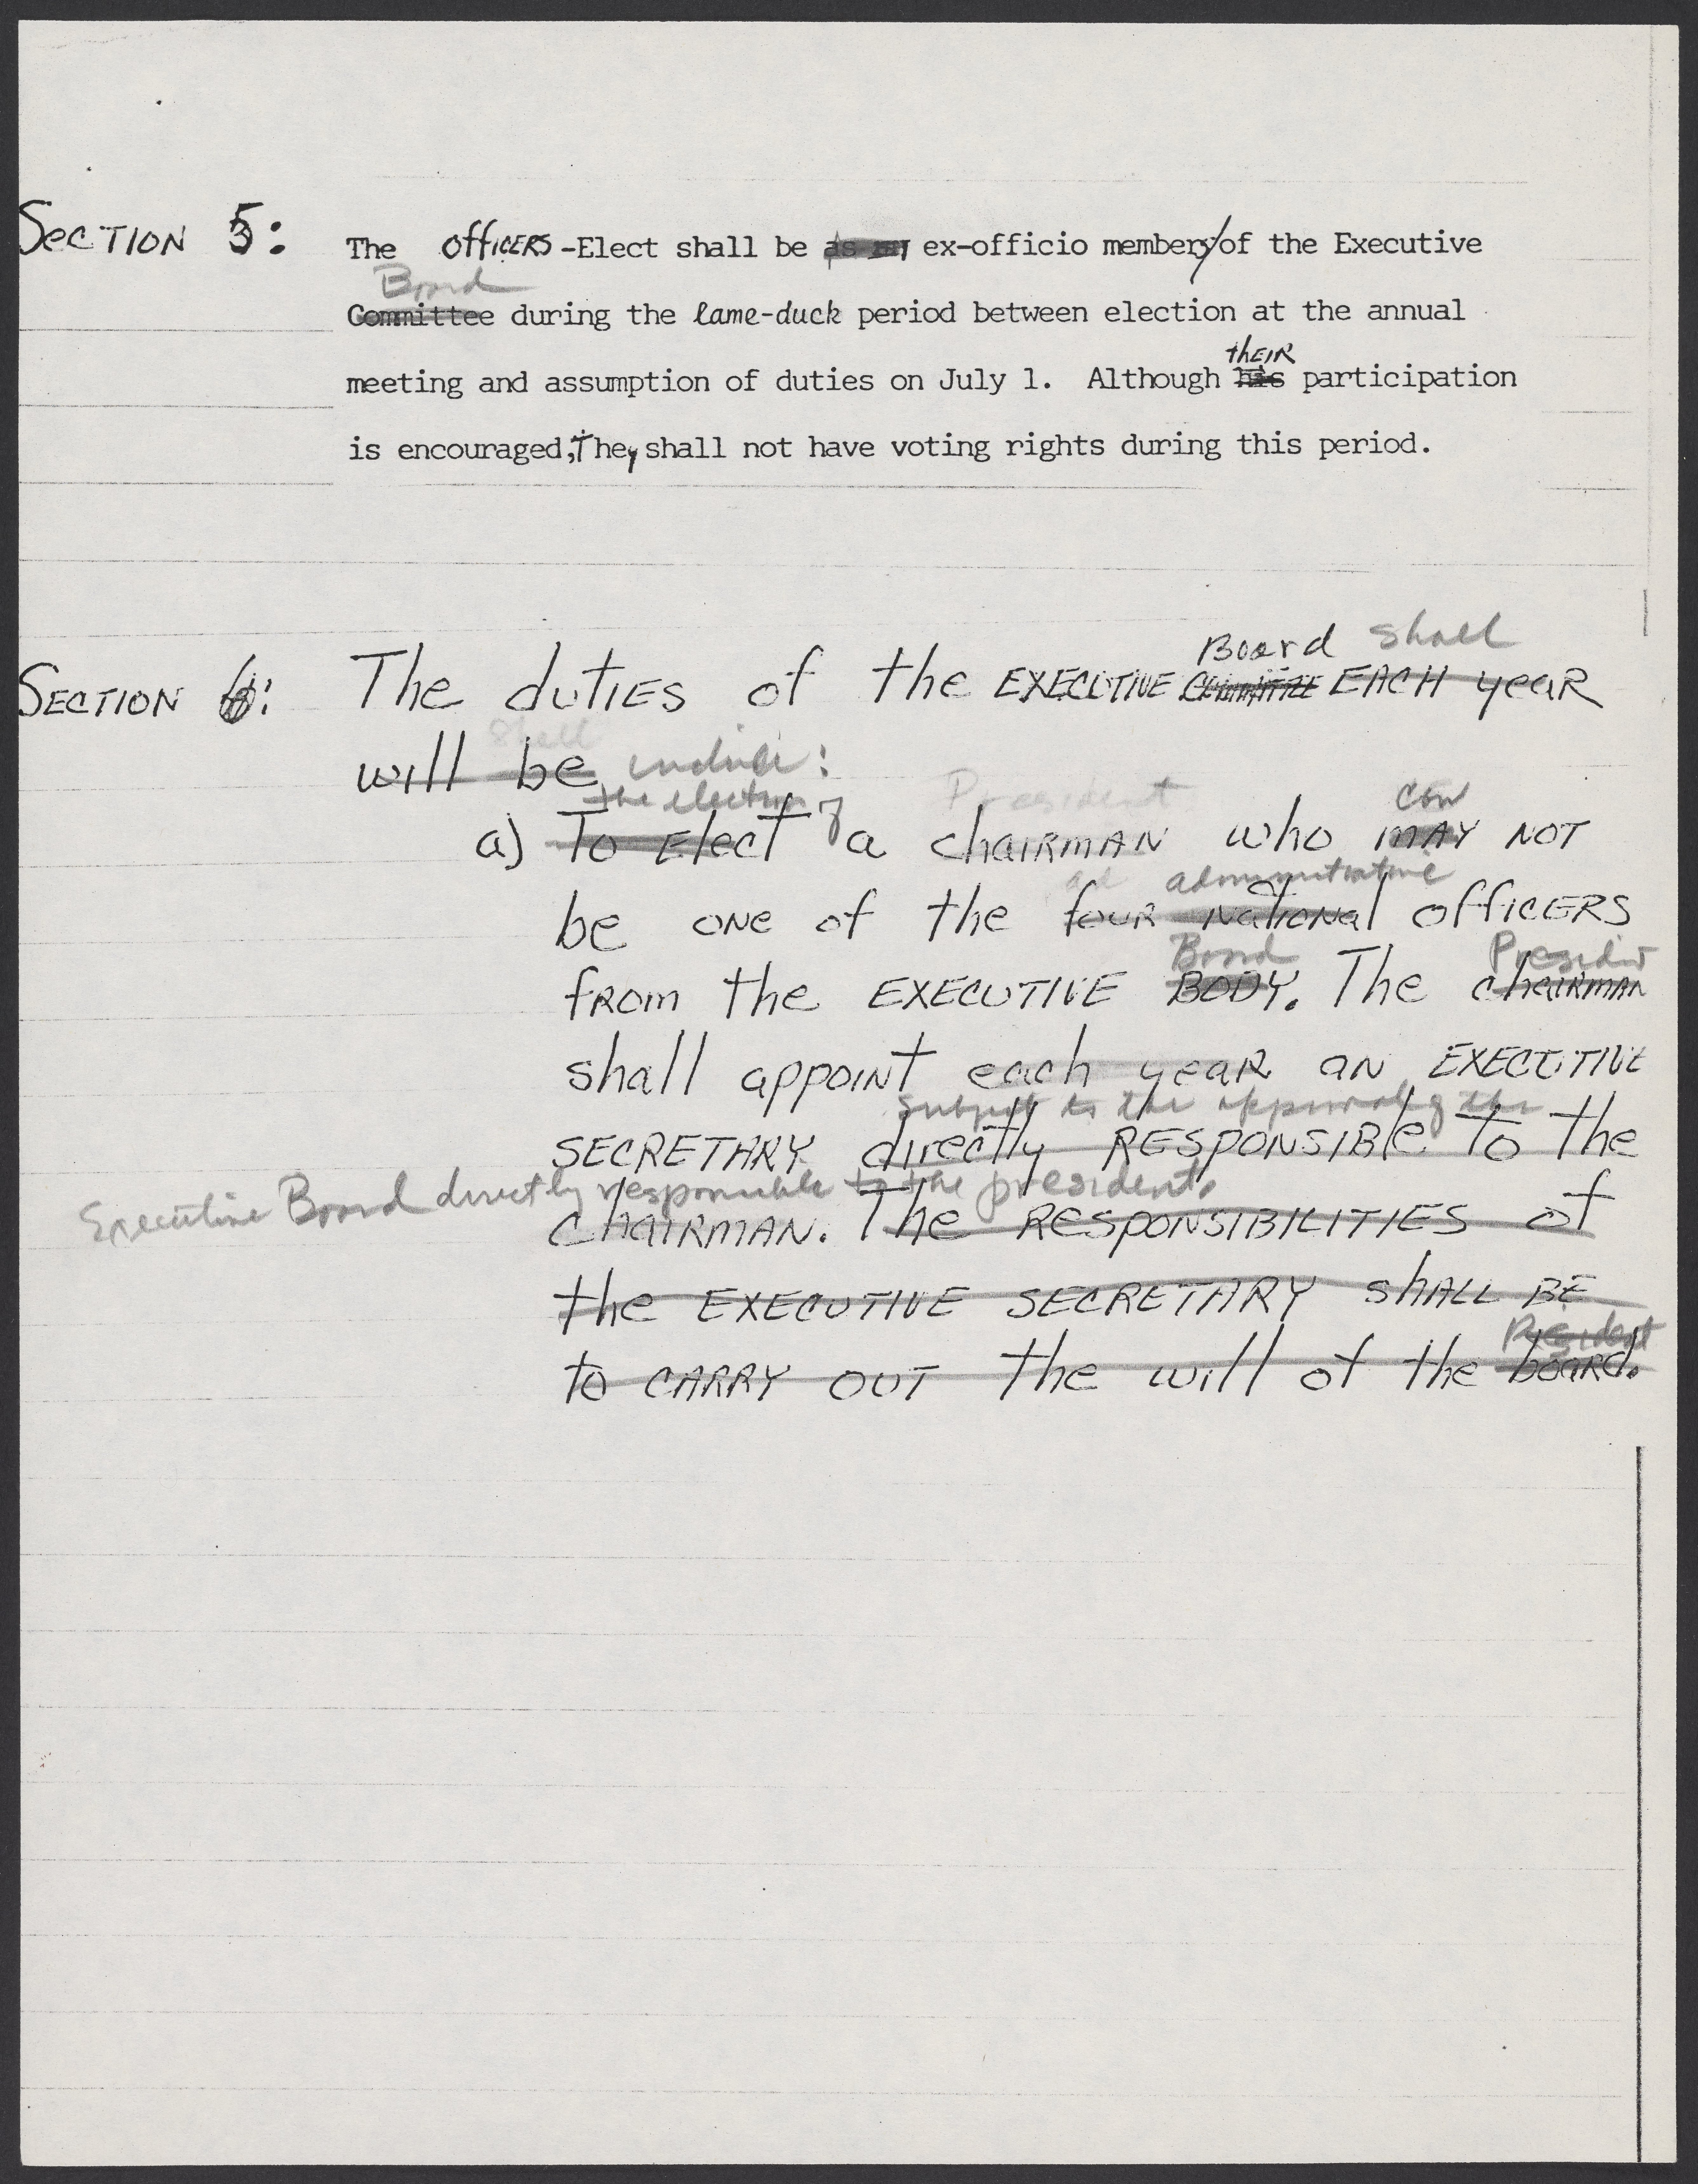 Section 5: The Officers-Elect shall be as an ex-officio members of the Executive
Board
Committee during the lame-duck period between election at the annual
their
meeting and assumption of duties on July 1. Although his participation
is encouraged, They shall not have voting rights during this period.
Board shall
Section 6: The duties of the EXECUTIVE COMMITTEE EACH year
shall
will be include:
the election of President can
a) To Elect a chairman who may not
ad administrative
be one of the four national officers
Board President
from the EXECUTIVE BODY. The chairman
shall appoint each year an EXECUTIVE
subject to the approval of the
SECRETARY directly RESPONSIBLE to the
Executive Board directly responsible to the president.
chairman. The RESPONSIBILITIES of
the EXECUTIVE SECRETARY shall BE
President
to CARRY OUT the will of the board.